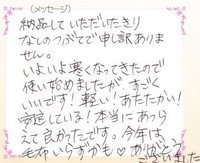 (メッセージ)
納品していただいたきり
なしのつぶてで申し訳ありま
せん。
いよいよ寒くなってきたので
使い始めましたが、すごく
いいです！軽い！あたたかい！
安定している！本当にあつら
えて良かったです。今年は
毛布いらずかも♡ありがとう
ございました